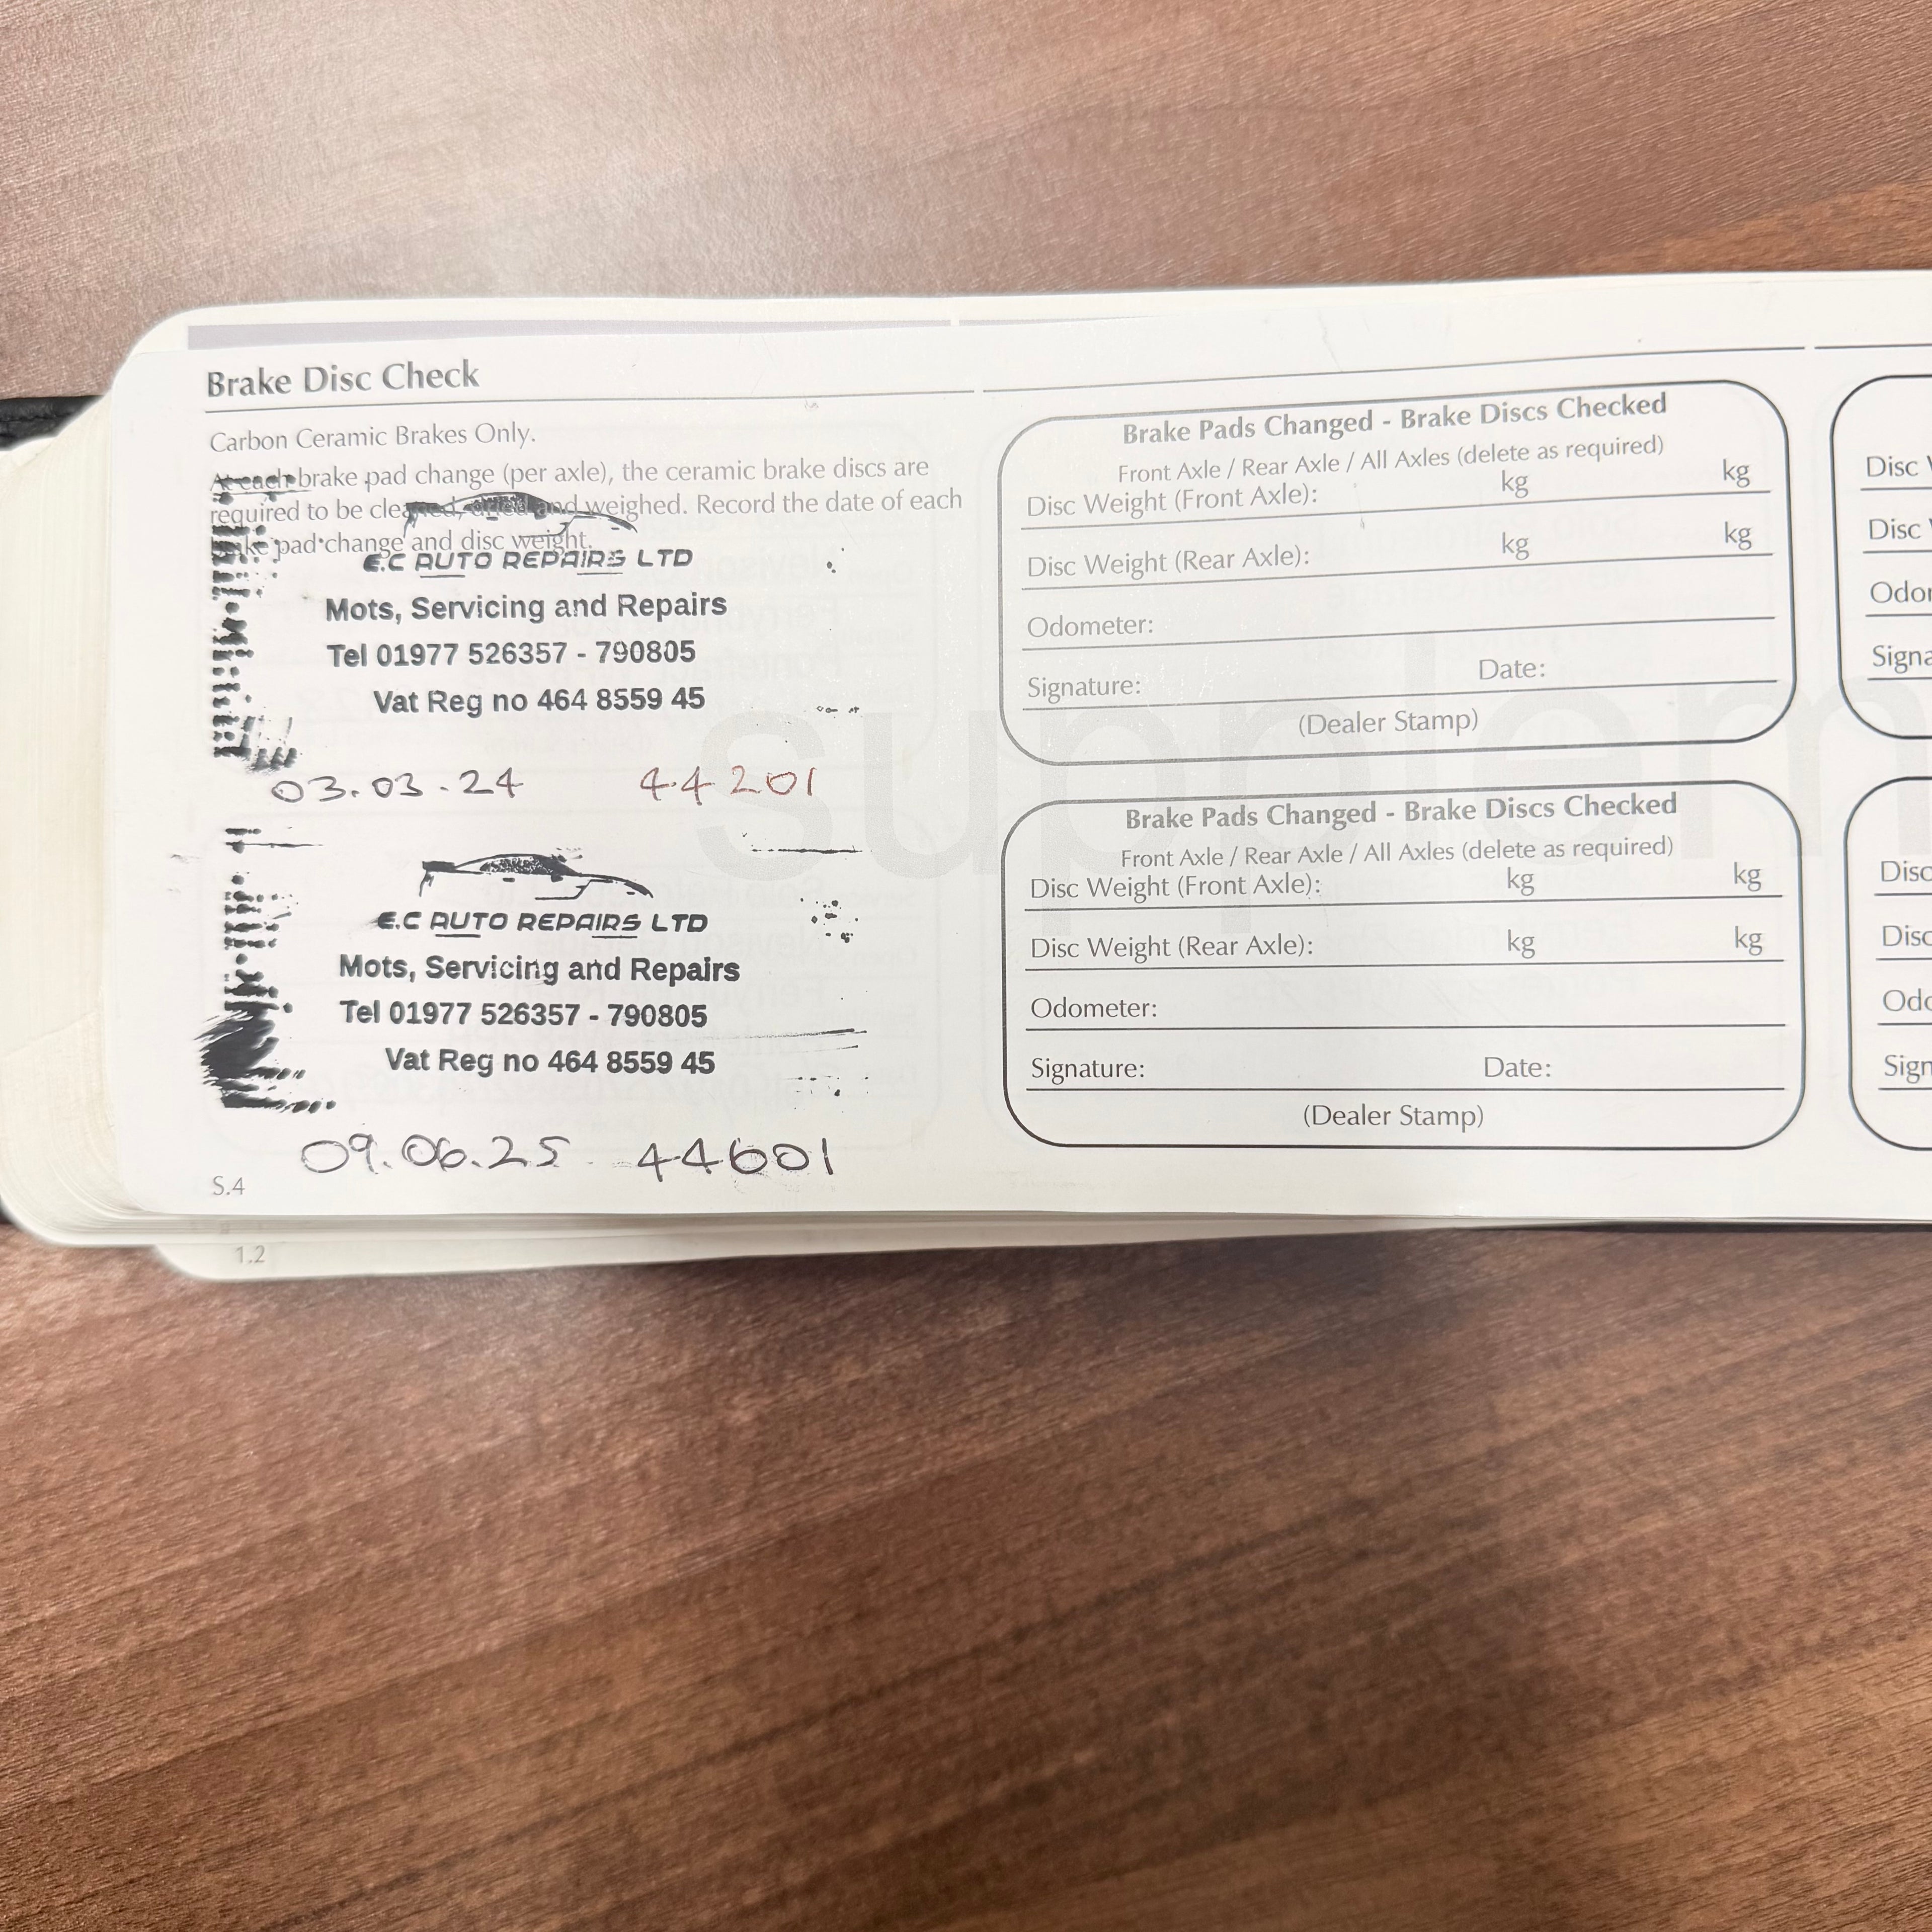 Brake Disc Check
Carbon Ceramic Brakes Only.
At each brake pad change (per axle), the ceramic brake discs are
required to be cleaned, dried and weighed. Record the date of each
brake pad change and disc weight.
E.C AUTO REPAIRS LTD
Mots, Servicing and Repairs
Tel 01977 526357 - 790805
Vat Reg no 464 8559 45
03.03.24 44201
E.C AUTO REPAIRS LTD
Mots, Servicing and Repairs
Tel 01977 526357 - 790805
Vat Reg no 464 8559 45
09.06.25 44601
S.4
1.2
Brake Pads Changed - Brake Discs Checked
Front Axle / Rear Axle / All Axles (delete as required)
Disc Weight (Front Axle): kg kg
Disc Weight (Rear Axle): kg kg
Odometer:
Signature: Date:
(Dealer Stamp)
Brake Pads Changed - Brake Discs Checked
Front Axle / Rear Axle / All Axles (delete as required)
Disc Weight (Front Axle): kg kg
Disc Weight (Rear Axle): kg kg
Odometer:
Signature: Date:
(Dealer Stamp)
supplem
Disc
Disc
Odo
Signa
Disc
Disc
Odo
Sign